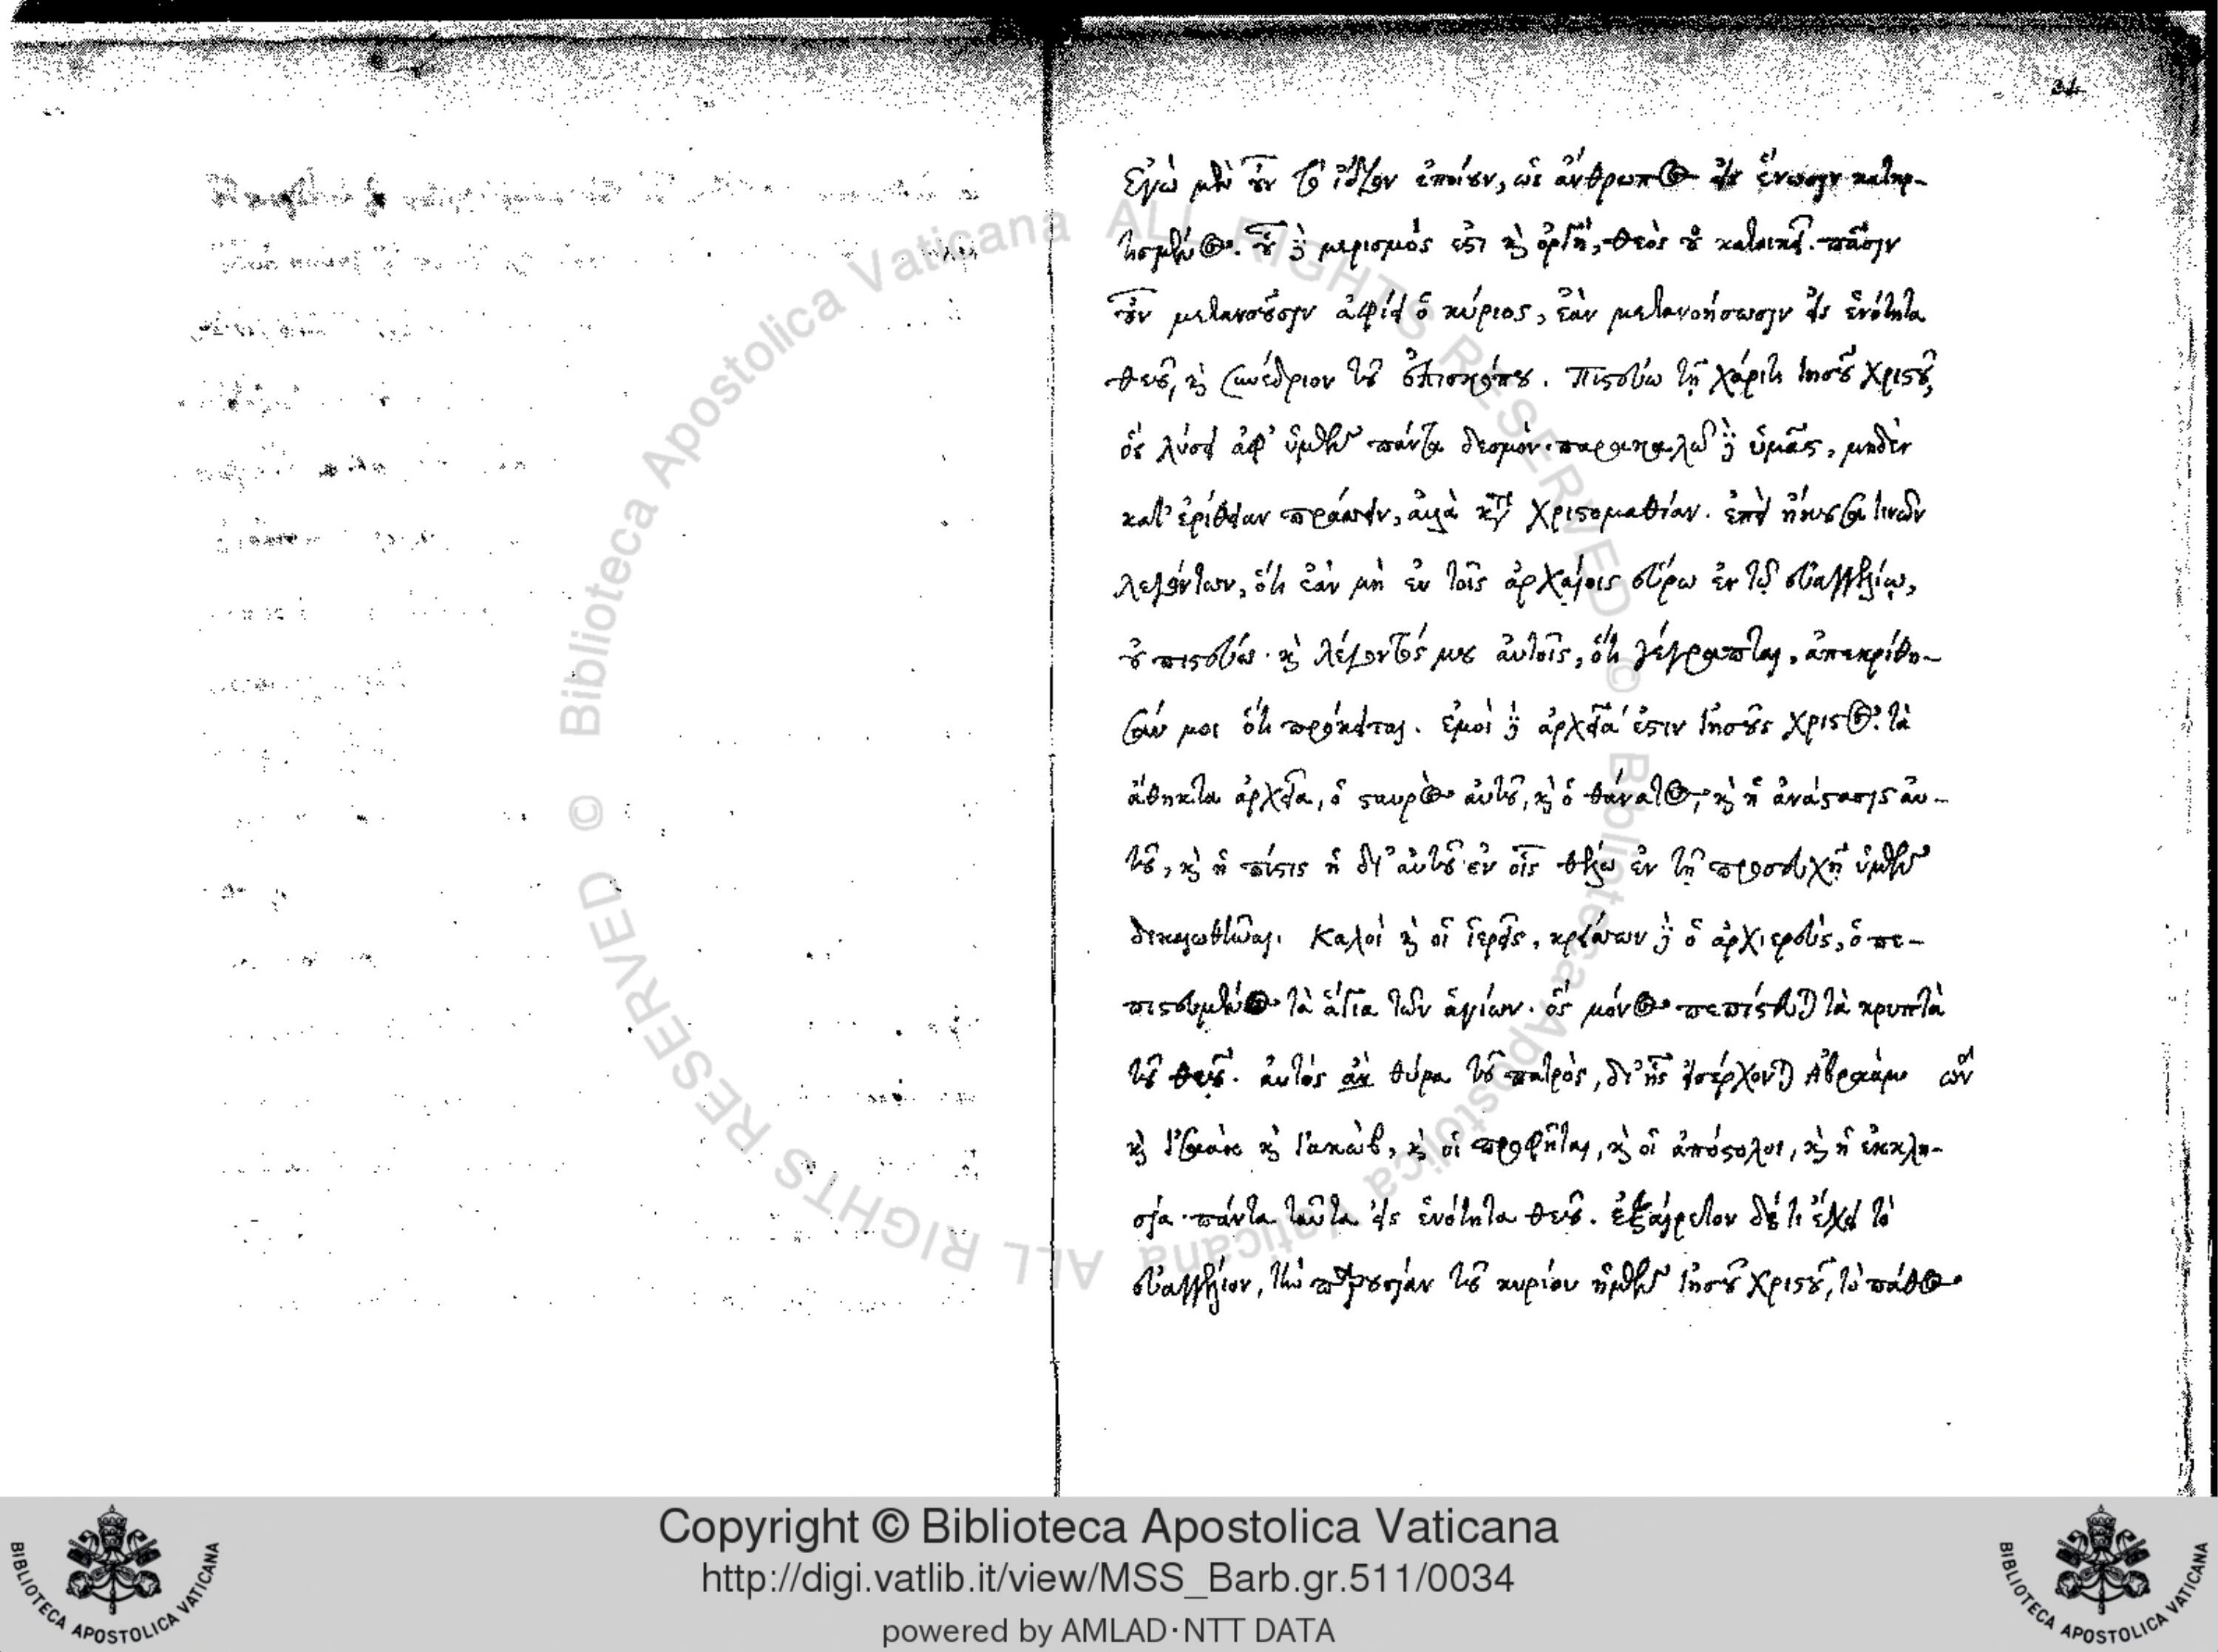 31
Ἐγὼ μὲν οὖν τὸ ἴδιον ἐποίουν, ὡς ἄνθρωπος εἰς ἕνωσιν κατηρ-
τισμένος. οὗ δὲ μερισμός ἐστι καὶ ὀργή, θεὸς οὐ κατοικεῖ. πᾶσιν
οὖν μετανοοῦσιν ἀφίει ὁ κύριος, ἐὰν μετανοήσωσιν εἰς ἑνότητα
θεοῦ, καὶ συνέδριον τοῦ ἐπισκόπου. Πιστεύω τῇ χάριτι Ἰησοῦ Χριστοῦ,
ὃς λύσει ἀφ' ὑμῶν πάντα δεσμόν. παρακαλῶ δὲ ὑμᾶς, μηδὲν
κατ' ἐρίθειαν πράσσειν, ἀλλὰ κατὰ χριστομαθίαν. ἐπεὶ ἤκουσά τινων
λεγόντων, ὅτι ἐὰν μὴ ἐν τοῖς ἀρχαίοις εὕρω ἐν τῷ εὐαγγελίῳ,
οὐ πιστεύω. καὶ λέγοντός μου αὐτοῖς, ὅτι γέγραπται, ἀπεκρίθη-
σάν μοι ὅτι πρόκειται. ἐμοὶ δὲ ἀρχεῖά ἐστιν Ἰησοῦς Χριστός. τὰ
ἄθηκτα ἀρχεῖα, ὁ σταυρὸς αὐτοῦ, καὶ ὁ θάνατος, καὶ ἡ ἀνάστασις αὐ-
τοῦ, καὶ ἡ πίστις ἡ δι' αὐτοῦ. ἐν οἷς θέλω ἐν τῇ προσευχῇ ὑμῶν
δικαιωθῆναι. Καλοὶ καὶ οἱ ἱερεῖς, κρεῖσσων δὲ ὁ ἀρχιερεύς, ὁ πε-
πιστευμένος τὰ ἅγια τῶν ἁγίων. ὃς μόνος πεπίστευται τὰ κρυπτὰ
τοῦ θεοῦ. αὐτὸς θύρα τοῦ πατρός, δι' ἧς εἰσέρχονται Ἀβραὰμ ὢν
καὶ Ἰσαὰκ καὶ Ἰακώβ, καὶ οἱ προφῆται, καὶ οἱ ἀπόστολοι, καὶ ἡ ἐκκλη-
σία. πάντα ταῦτα εἰς ἑνότητα θεοῦ. ἐξαίρετον δέ τι ἔχει τὸ
εὐαγγέλιον, τὴν παρουσίαν τοῦ κυρίου ἡμῶν Ἰησοῦ Χριστοῦ, τὸ πάθος
Copyright © Biblioteca Apostolica Vaticana
http://digi.vatlib.it/view/MSS_Barb.gr.511/0034
powered by AMLAD·NTT DATA
BIBLIOTECA APOSTOLICA VATICANA
BIBLIOTECA APOSTOLICA VATICANA
© Biblioteca Apostolica Vaticana ALL RIGHTS RESERVED
© Biblioteca Apostolica Vaticana ALL RIGHTS RESERVED